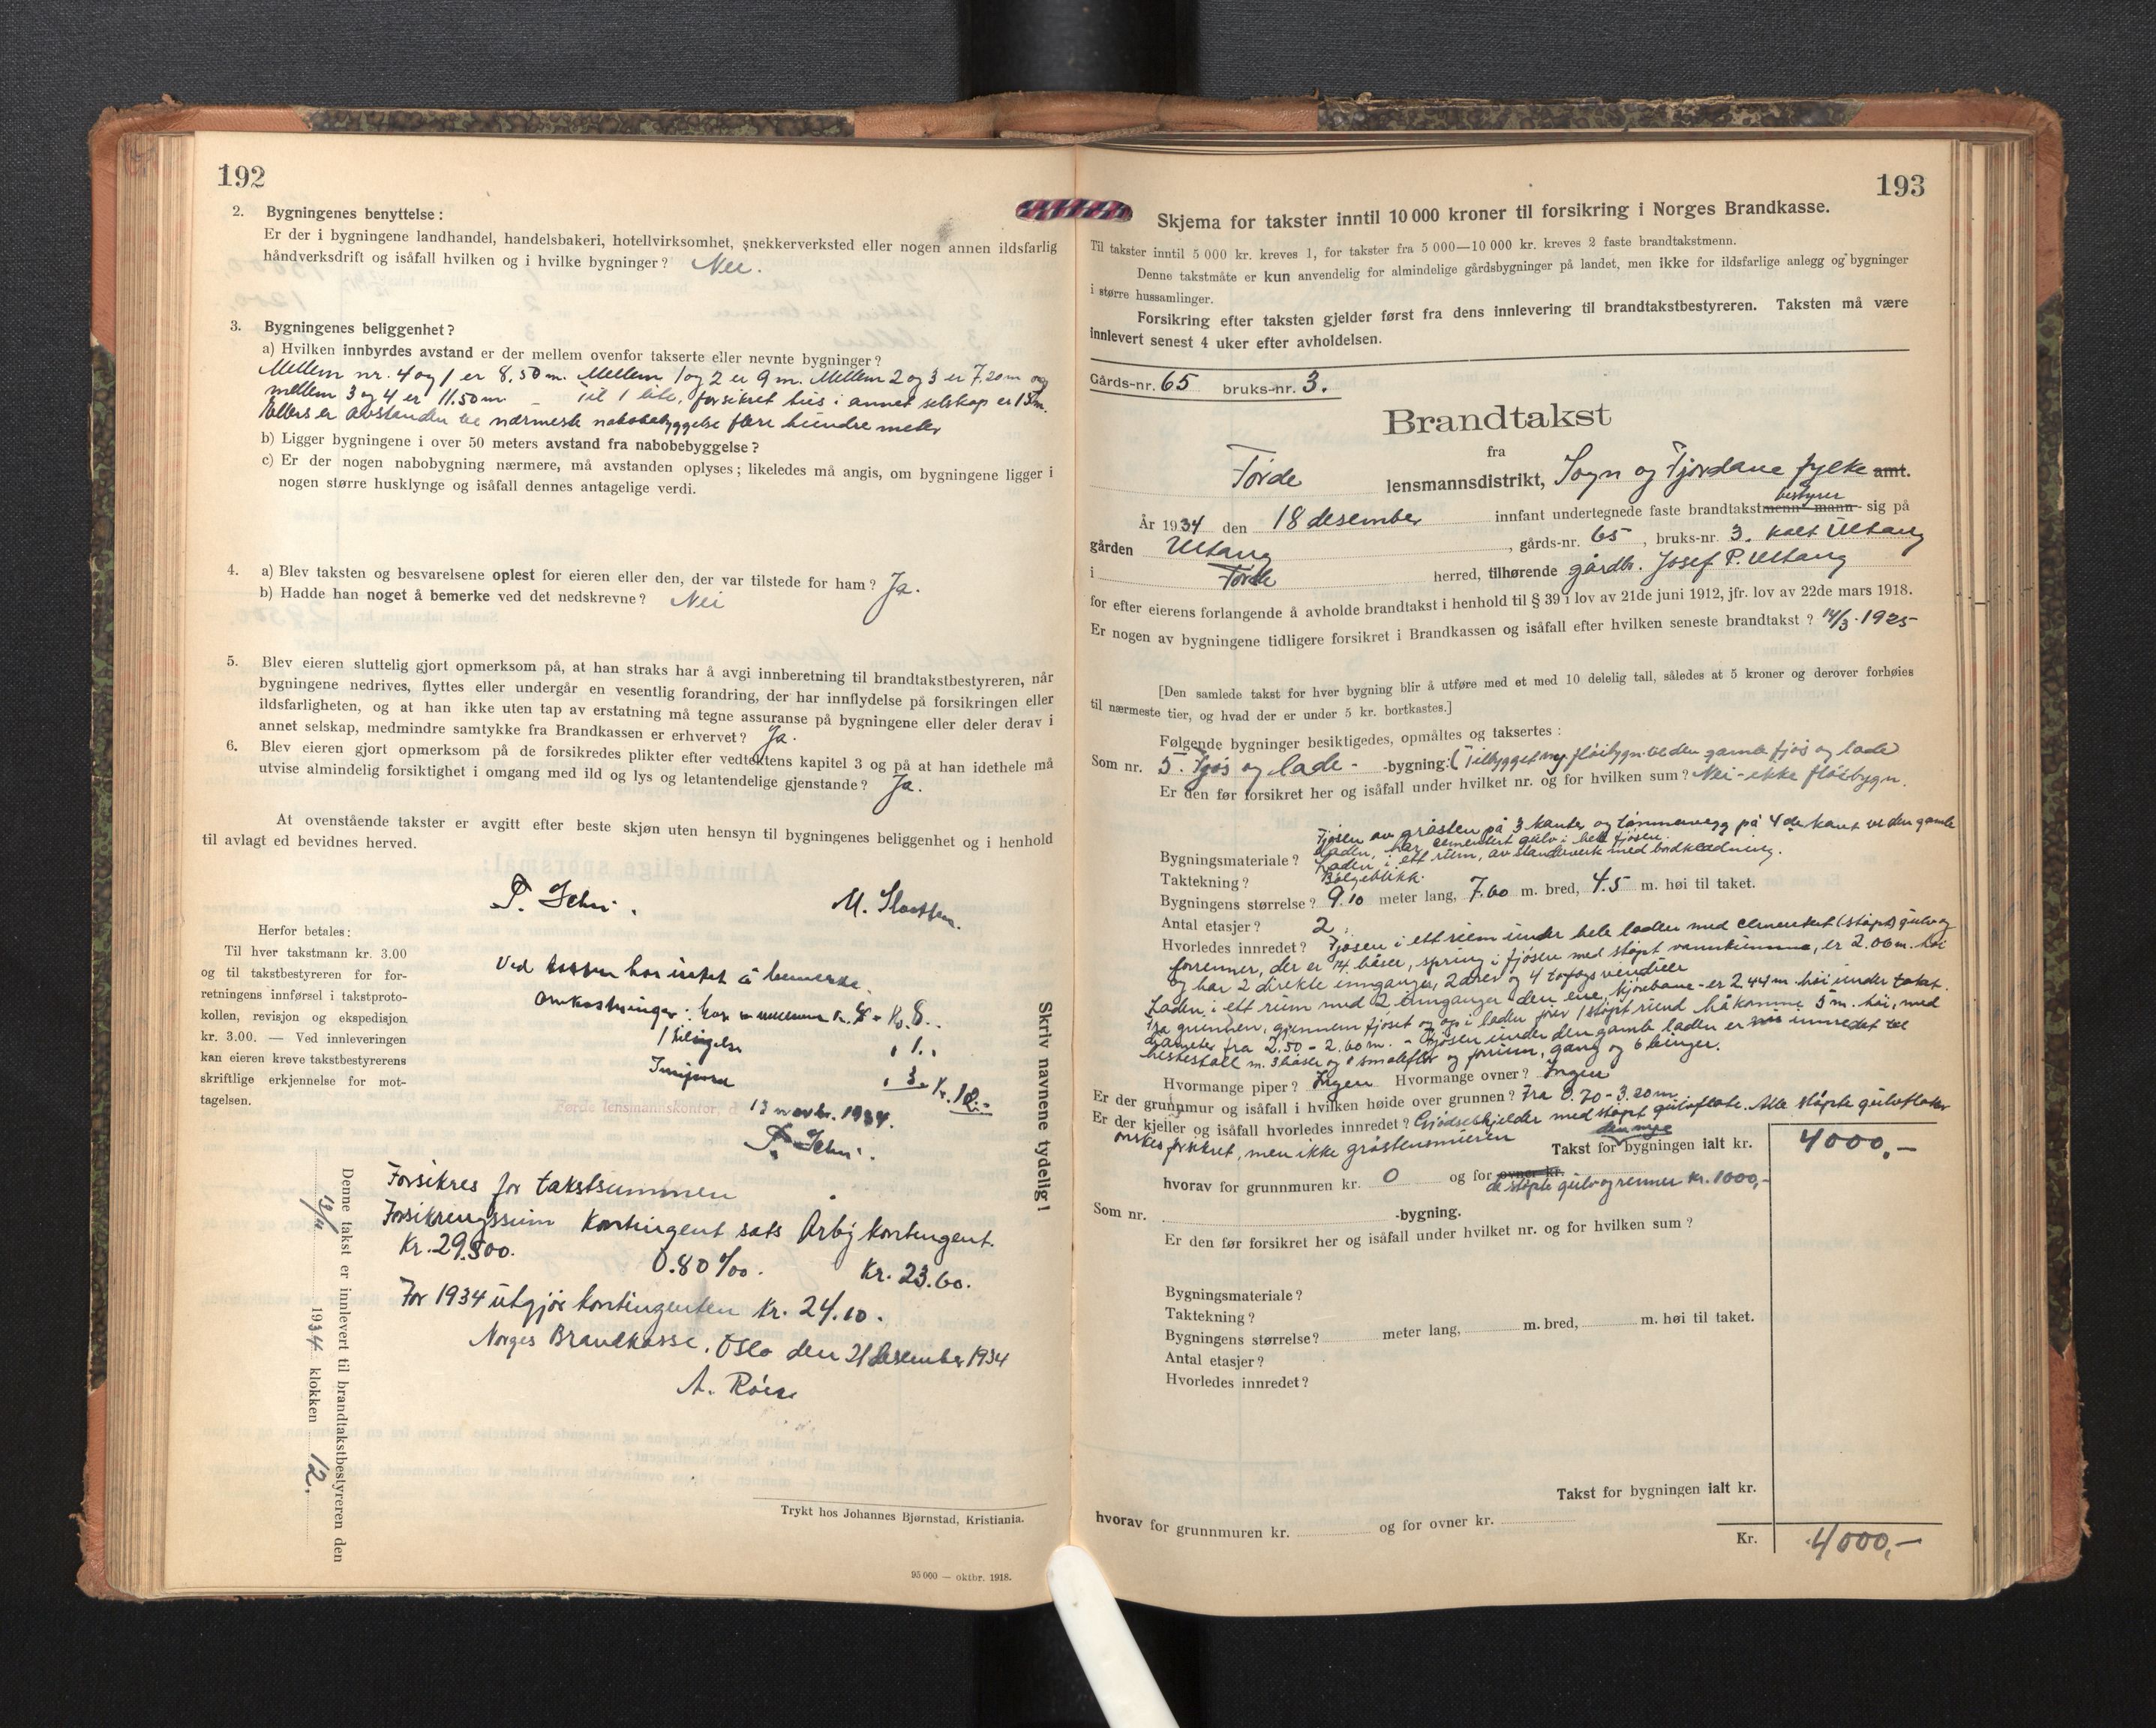 192
2. Bygningenes benyttelse:
Er der i bygningene landhandel, handelsbakeri, hotellvirksomhet, snekkerverksted eller nogen annen ildsfarlig
håndverksdrift og isåfall hvilken og i hvilke bygninger? Nei.
3. Bygningenes beliggenhet?
a) Hvilken innbyrdes avstand er der mellem ovenfor takserte eller nevnte bygninger?
Mellem nr. 4 og 1 er 8,50 m. Mellem 1 og 2 er 9 m. Mellem 2 og 3 er 7.20m og
mellem 3 og 4 er 11.50 m – Til 1 lite, forsikret hus i annet selskap er 15m.
Ellers er avstanden til nærmeste nabobebyggelse flere hundre meter
b) Ligger bygningene i over 50 meters avstand fra nabobebyggelse?
c) Er der nogen nabobygning nærmere, må avstanden oplyses; likeledes må angis, om bygningene ligger i
nogen større husklynge og isåfall dennes antagelige verdi.
4. a) Blev taksten og besvarelsene oplest for eieren eller den, der var tilstede for ham? Ja.
b) Hadde han noget å bemerke ved det nedskrevne? Nei
5. Blev eieren sluttelig gjort opmerksom på, at han straks har å avgi innberetning til brandtakstbestyreren, når
bygningene nedrives, flyttes eller undergår en vesentlig forandring, der har innflydelse på forsikringen eller
ildsfarligheten, og at han ikke uten tap av erstatning må tegne assuranse på bygningene eller deler derav i
annet selskap, medmindre samtykke fra Brandkassen er erhvervet? Ja.
6. Blev eieren gjort opmerksom på de forsikredes plikter efter vedtektens kapitel 3 og på at han idethele må
utvise almindelig forsiktighet i omgang med ild og lys og letantendelige gjenstande? Ja.
At ovenstående takster er avgitt efter beste skjøn uten hensyn til bygningenes beliggenhet og i henhold
til avlagt ed bevidnes herved.
Herfor betales:
Til hver takstmann kr. 3.00
og til takstbestyreren for for-
retningens innførsel i takstproto-
kollen, revisjon og ekspedisjon
kr. 3.00. — Ved innleveringen
kan eieren kreve takstbestyrerens
skriftlige erkjennelse for mot-
tagelsen.
Ved taksen har intet å bemerke.
Omkostninger: kr. 8..
" 1.
" 3.
Førde lensmannskontor, d 13 novbr. 1934.
Skriv navnene tydelig!
Forsikres for takstsummen
Forsikringssum Kontingent sats Årlig kontingent.
Kr. 29.500. 0.80 ‰. Kr. 23.60.
For 1934 utgjør kontingenten kr. 24.10.
Norges Brandkasse. Oslo den 21 desember 1934
Denne takst er innlevert til brandtakstbestyreren den
13/11 1934 klokken 12.
Trykt hos Johannes Bjørnstad, Kristiania.
95 000 — oktbr. 1918.
193
Skjema for takster inntil 10 000 kroner til forsikring i Norges Brandkasse.
Til takster inntil 5 000 kr. kreves 1, for takster fra 5 000—10 000 kr. kreves 2 faste brandtakstmenn.
Denne takstmåte er kun anvendelig for almindelige gårdsbygninger på landet, men ikke for ildsfarlige anlegg og bygninger
i større hussamlinger.
Forsikring efter taksten gjelder først fra dens innlevering til brandtakstbestyreren. Taksten må være
innlevert senest 4 uker efter avholdelsen.
Gårds-nr. 65 bruks-nr. 3.
Brandtakst
fra
Førde lensmannsdistrikt, Sogn og Fjordane fylke amt.
bestyrer
År 1934 den 18 desember innfant undertegnede faste brandtakstmenn-mann- sig på
gården Ultang, gårds-nr. 65, bruks-nr. 3. kalt Ultang
i Førde herred, tilhørende gårdb. Josef P. Ultang
for efter eierens forlangende å avholde brandtakst i henhold til § 39 i lov av 21de juni 1912, jfr. lov av 22de mars 1918.
Er nogen av bygningene tidligere forsikret i Brandkassen og isåfall efter hvilken seneste brandtakst? 14/3.1925
[Den samlede takst for hver bygning blir å utføre med et med 10 delelig tall, således at 5 kroner og derover forhøies
til nærmeste tier, og hvad der er under 5 kr. bortkastes.]
Følgende bygninger besiktigedes, opmåltes og taksertes:
Som nr. 5. Fjøs og lade - -bygning: (Tilbygget ny fløibygn. til den gamle fjøs og lade)
Er den før forsikret her og isåfall under hvilket nr. og for hvilken sum? Nei - ikke fløibygn.
Fjøsen av gråsten på 3 kanter og tømmervegg på 4de kant ve den gamle
laden, har cementert gulv i hele fjøsen.
Bygningsmateriale? Laden i ett rum, av standerverk med bordklædning.
Taktekning? Bølgeblikk.
Bygningens størrelse? 9.10 meter lang, 7.60 m. bred, 4.5 m. høi til taket.
Antal etasjer? 2.
Hvorledes innredet? Fjøsen i ett rum under hele laden med cementert (støpt) gulv og
forrenner, der er 14 båser, spring i fjøsen med støpt vannkumme, er 2.06 m. høi
og har 2 direkte innganger, 2 dører og 4 vinduer
Laden i ett rum med 2 innganger den ene kjørebane - er 2.44 m. høi under taket.
Fra grunnen, gjennem fjøset og op i laden fører 1 støpt rund håkomme 5 m. høi, med
diameter fra 2.50 - 2.60 m. - Fjøsen under den gamle laden er innredet til
hestestall m. 3 båser og 1 smalefjøs og forrum, gang og 6 binger.
Hvormange piper? Ingen Hvormange ovner? Ingen
Er der grunnmur og isåfall i hvilken høide over grunnen? Fra 0.70 - 3.20 m.
Er der kjeller og isåfall hvorledes innredet? Gjødselkjelder med støpt gulvflate. Alle støpte gulvflater
ønskes forsikret, men ikke gråstensmuren
den nye
Takst for bygningen ialt kr. 4000,-
hvorav for grunnmuren kr. 0 og for ovner kr.
de støpte gulv og renner kr. 1000,-
Som nr. -bygning.
Er den før forsikret her og isåfall under hvilket nr. og for hvilken sum?
Bygningsmateriale?
Taktekning?
Bygningens størrelse? meter lang, m. bred, m. høi til taket.
Antal etasjer?
Hvorledes innredet?
Takst for bygningen ialt kr.
hvorav for grunnmuren kr. og for ovner kr.
Kr. 4000,-